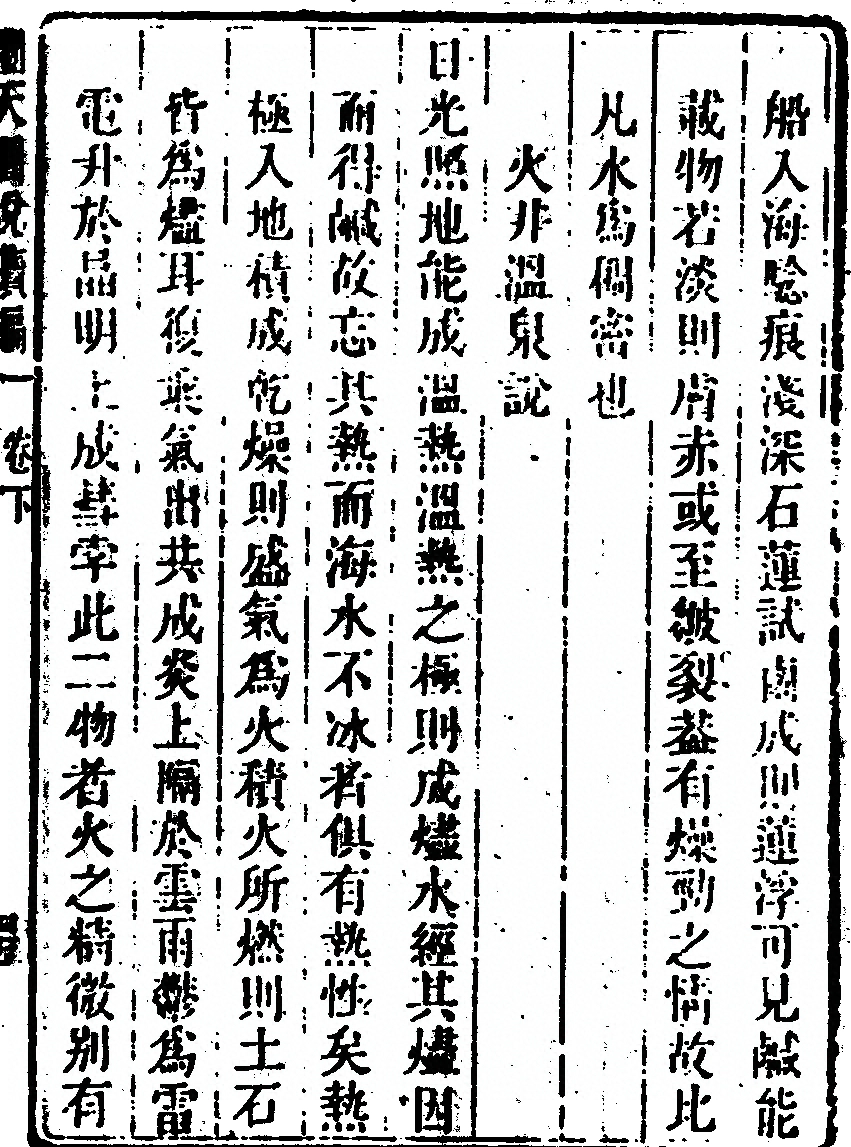 船入海驗痕淺深石蓮試鹵成則蓮浮可見鹹能
載物若淡則膚赤或至皴裂葢有燥勁之情故比
凡水爲倜密也
火非溫泉說
日光照地能成溫熱溫熱之極則成燼水經其燼因
而得鹹故忘其熱而海水不冰者俱有熱性矣熱
極入地積成乾燥則盛氣爲火積火所燃則土石
皆爲燼耳復乘氣出共成炎上隔於雲雨鬱爲雷
電升於晶明上成彗孛此二物者火之精微別有
天 說 編 一 卷下